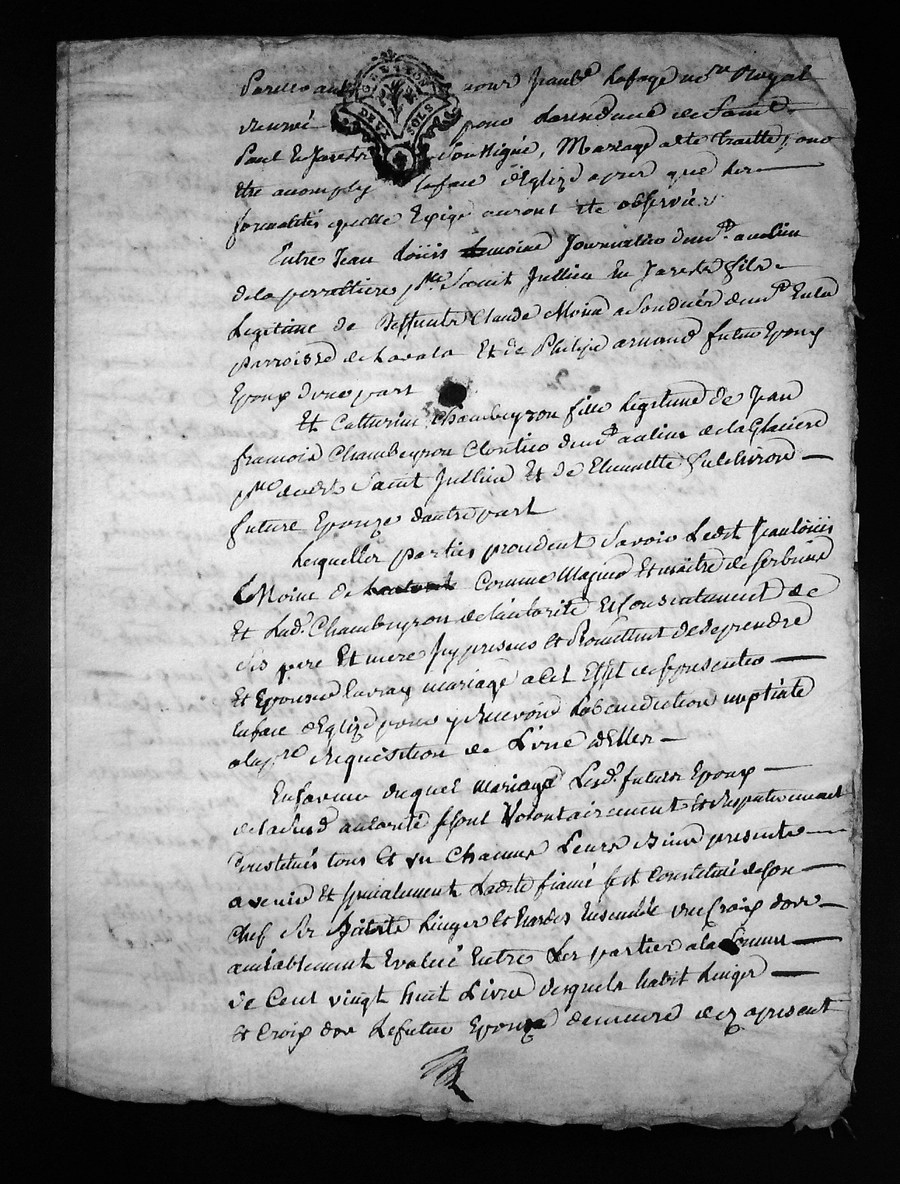 Pardevant nous Jean Bte Lafage nore Royal
reservé pour la rendue de Saint
Paul En Jarest Soussigné, Mariage a ete traitté, pour
Etre accomply En face d'Eglize apres que les
formalités quelle Exige auront ete observées
Entre Jean Loüis Lemoine Journallier demt au lieu
de la perrottiere psse Saint Jullien En Jarest fils
Legitime de Deffunts Claude Moine demt En la
parroisse de Lavala Et de Philipe arnaud futur Epoux
Epoux d'une part
Et Catherine Chambeyron fille Legitime de Jean
francois Chambeyron Cloutier demt au lieu de la Glaciere
psse dudt Saint Jullien Et de Etiennette
future Epouze d'autre part
Lesquelles parties procedent Savoir Ledt Jean Loüis
Moine de Comme Majeur Et maitre de ses biens
Et Lade Chambeyron de l'autorité Et Consentement de
ses pere Et mere Icy presens Et Promettent de se prendre
Et Epouser En vray mariage a Cet Effet se presenter
En face d'Eglize pour y Recevoir La benediction nuptiale
a la pre Requisition de L'une d'Elles
En faveur duquel mariage Lesds futurs Epoux
de lasusd autorité se sont Volontairement Et respectivement
Constitués tous Et un Chacuns Leurs biens presents
a venir Et specialement Ladte fiancée s'est Constitué de son
Chef Ses habits Linges Et hardes Ensemble une Croix d'or
amiablement Evalué Entre Les parties a la Somme
de Cent vingt huit Livres desquels habit Linges
Et Croix d'or Le futur Epoux demeure dez a present
GENE LYON
DEUX SOLS